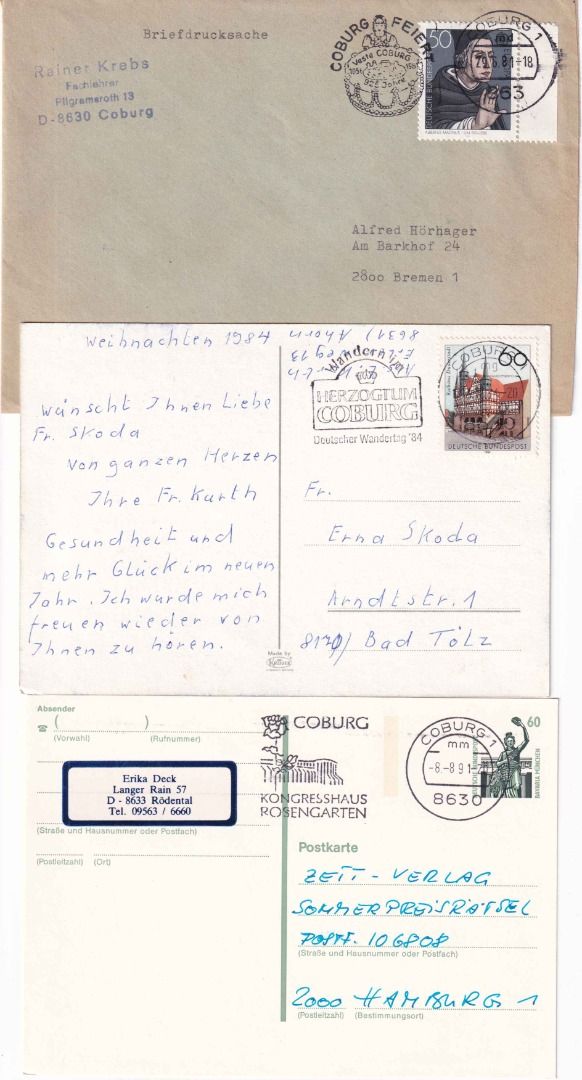 Briefdrucksache
Rainer Krebs
Fachlehrer
Pilgramsroth 13
D-8630 Coburg
COBURG FEIERT
Veste COBURG
1056
925 Jahre
50
DEUTSCHE BUNDESPOST
COBURG 1
-18
863
Alfred Hörhager
Am Barkhof 24
2800 Bremen 1
Weihnachten 1984
8631) Ahorn
wünscht Ihnen Liebe
Fr. Skoda
von ganzen Herzen
Ihre Fr. Kurth
Gesundheit und
mehr Glück im neuen
Jahr. Ich würde mich
freuen wieder von
Ihnen zu hören.
Wandern im
HERZOGTUM
COBURG
Deutscher Wandertag '84
COBURG 1
60
DEUTSCHE BUNDESPOST
Fr.
Erna Skoda
Arndtstr. 1
8170/ Bad Tölz
Made by
Krüger
Absender
(Vorwahl) (Rufnummer)
Erika Deck
Langer Rain 57
D - 8633 Rödental
Tel. 09563 / 6660
(Straße und Hausnummer oder Postfach)
(Postleitzahl) (Ort)
COBURG
KONGRESSHAUS
ROSENGARTEN
COBURG 1
mm
-8.-8 91-
8630
60
BAVARIA MÜNCHEN
Postkarte
ZEIT - VERLAG
SOMMERPREISRÄTSEL
POSTF. 106808
(Straße und Hausnummer oder Postfach)
2000 HAMBURG 1
(Postleitzahl) (Bestimmungsort)